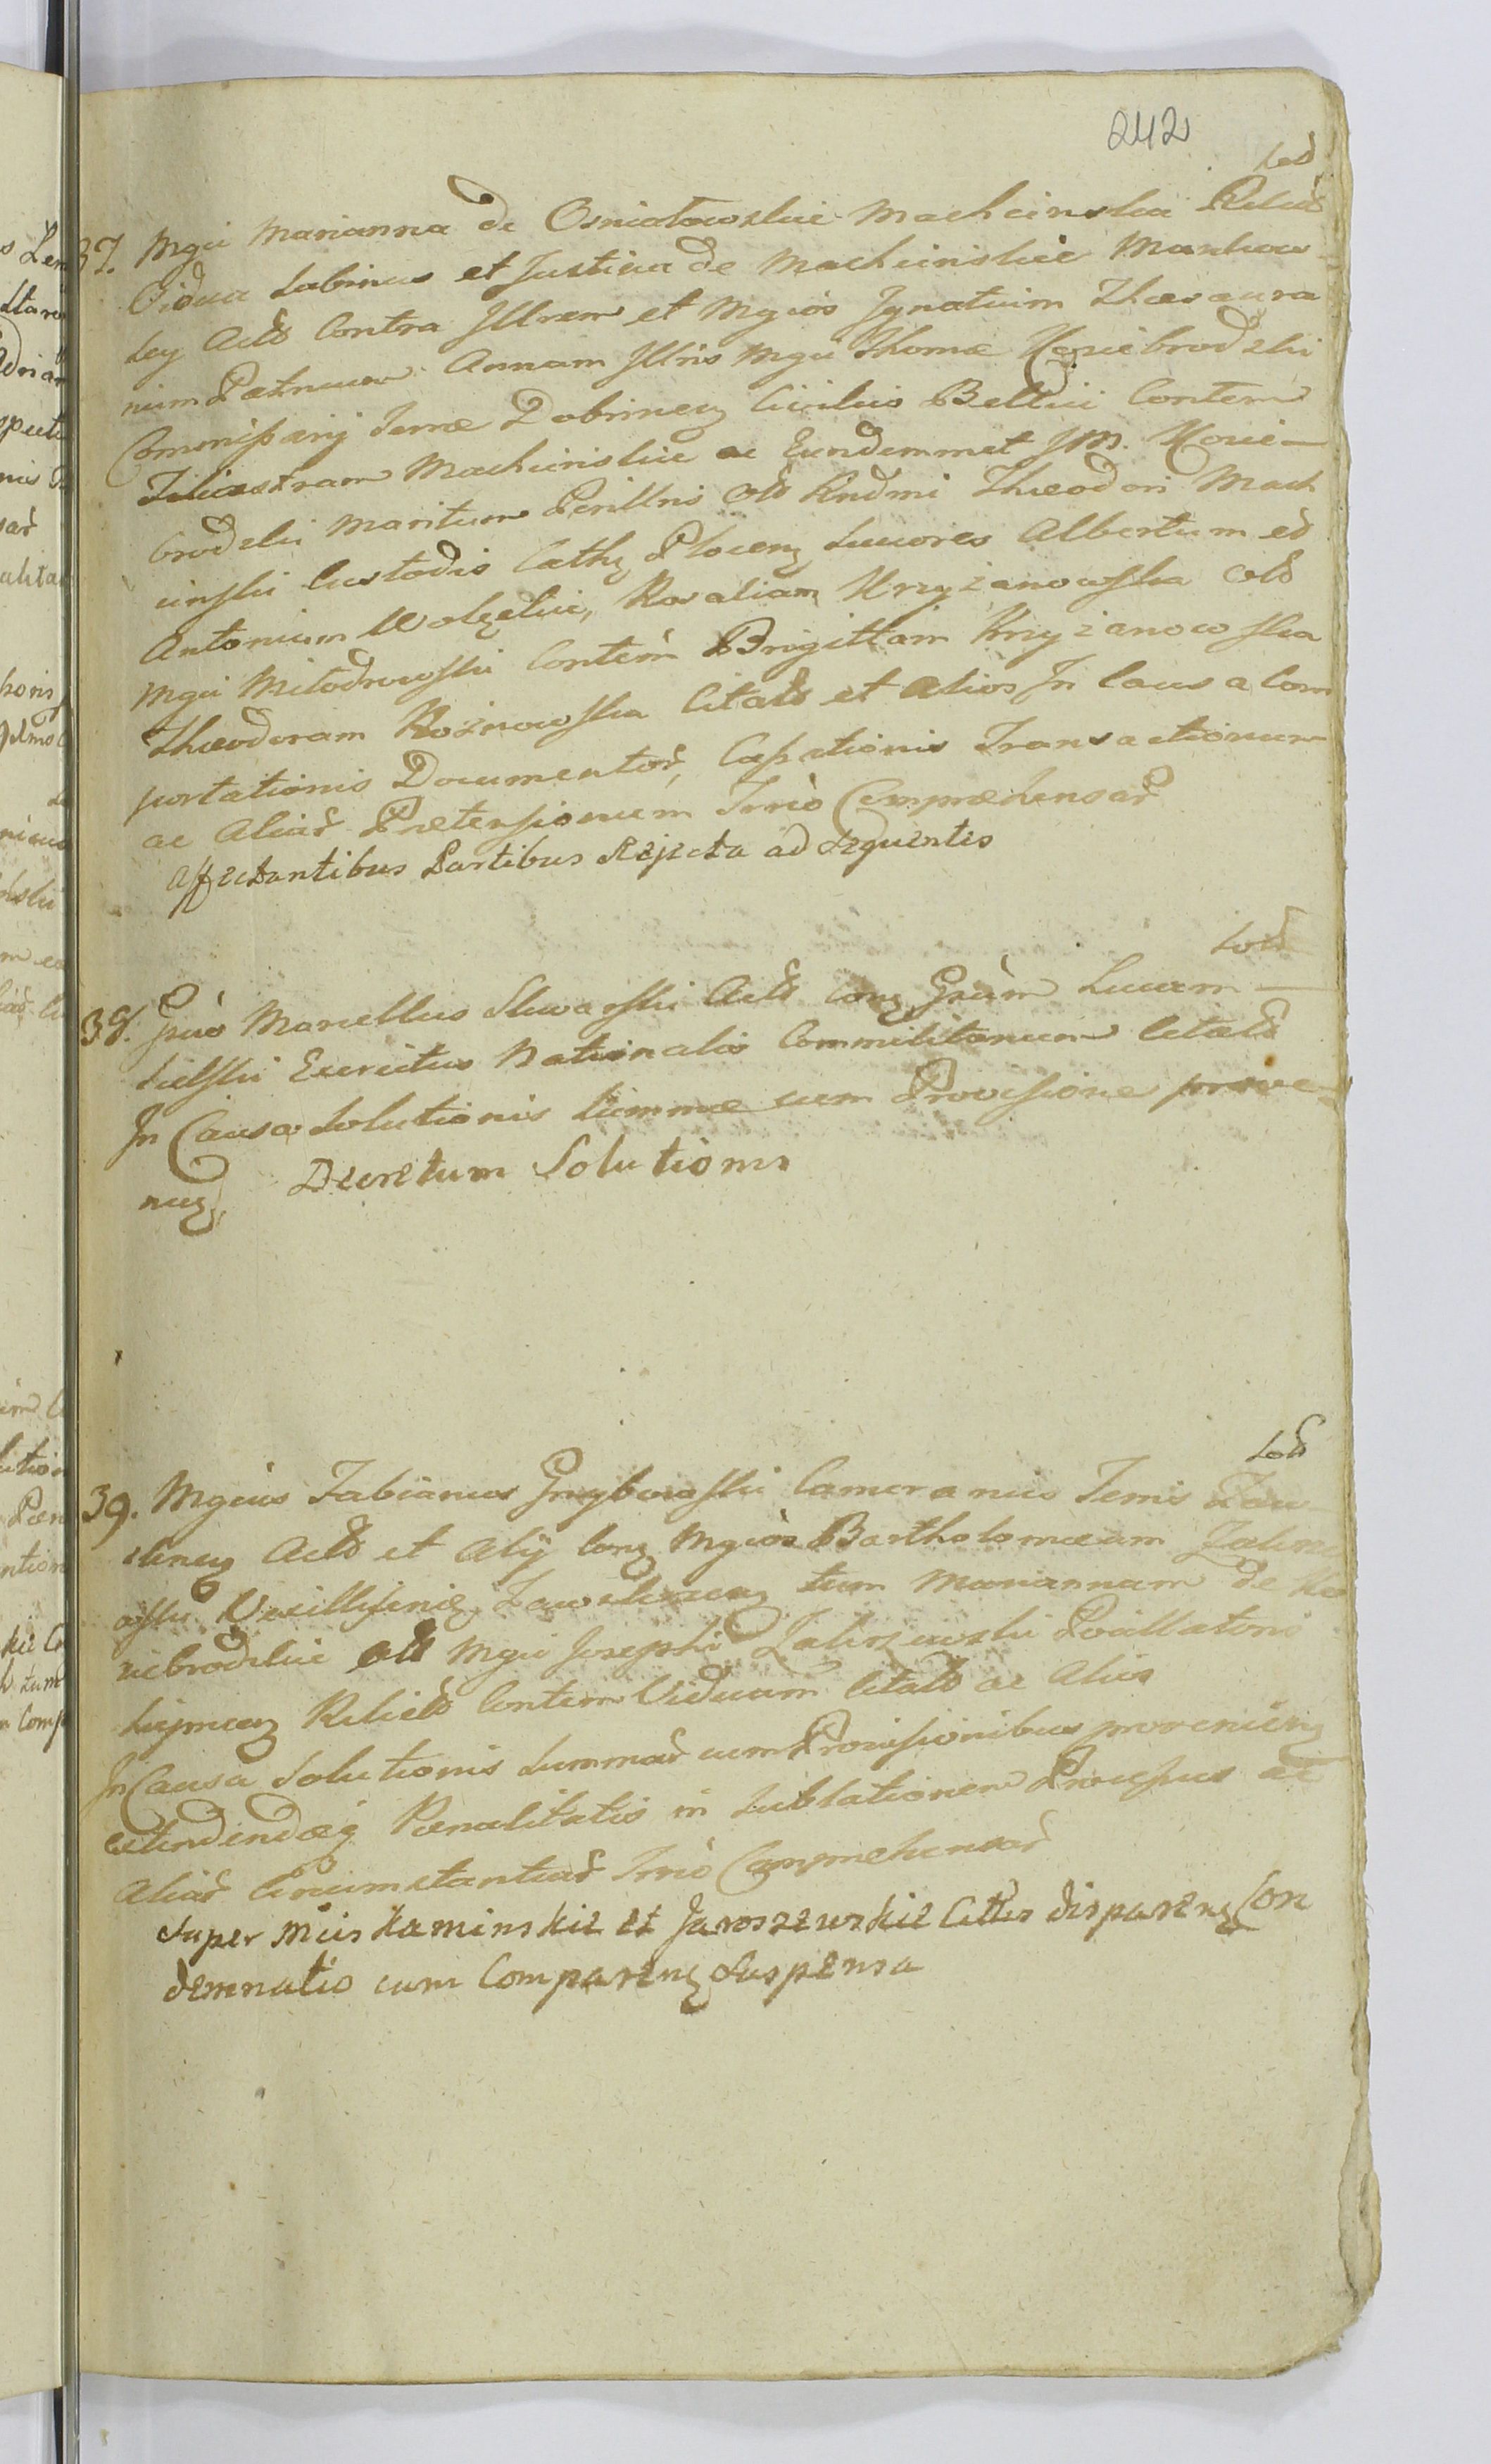 242
Sod
37. Mgci Marianna de Osniałowskie Machcinska Relict
Vidua Sabinus et Justina de Machcinskie Mankow
scy Act Contra Illrem et Mgcos Ignatium Thesaura
rium Patruum Annam Illris Mgci Thomæ Koziebrodzki
Commissarij Terræ Dobrinen Civilis Bellici Contem
Filiastram Machcinskie ac Eundemmet JM. Kozie-
brodzki Maritum Perillris olt Rndmi Theodori Mach
cinski Custodis Cathy Plocen Succores Albertum et
Antonium Rosaliam Krzyzanowska olt
Mgci Miłodrowski Contem Brigittam Krzyzanowska
Theodoram Roznowska Citats et Alios In Causa Com
portationis Documentor, Cassationis Transactionum
ac Aliar Prætensionum Trnio Comprehensar
Affectantibus Partibus Rejecta ad Sequentis
Sod
38. Gnus Marcellus Skwarski Act con Gnum Lucam
Sielski Exercitus Nationalis Commilitonem Citats
In Causa Solutionis Summæ cum Provisione prove-
nien Decretum Solutionis
Sod
39. Mgcus Fabianus Grzybowski Cameranius Terris Zaw
skrnen Act et Alij con Mgcos Bartholomæum Zalesz
ski Vexilliferiæ Zawskrznen tum Mariannam de Ko
ziebrodzkie olt Mgci Josephi Zaleszewski Pocillatoris
Relict Contem Viduam Citats ac Alios
In Causa Solutionis Summar cum Provisionibus provenien
extendendæq Pænalitatis in Sublationem Processus ac
Aliar Circumstantiar Trnio Comprehensar
Super Mcis Kaminskie et Jaroszewskie Cittis disparen Con
demnatio cum Comparen Suspensa